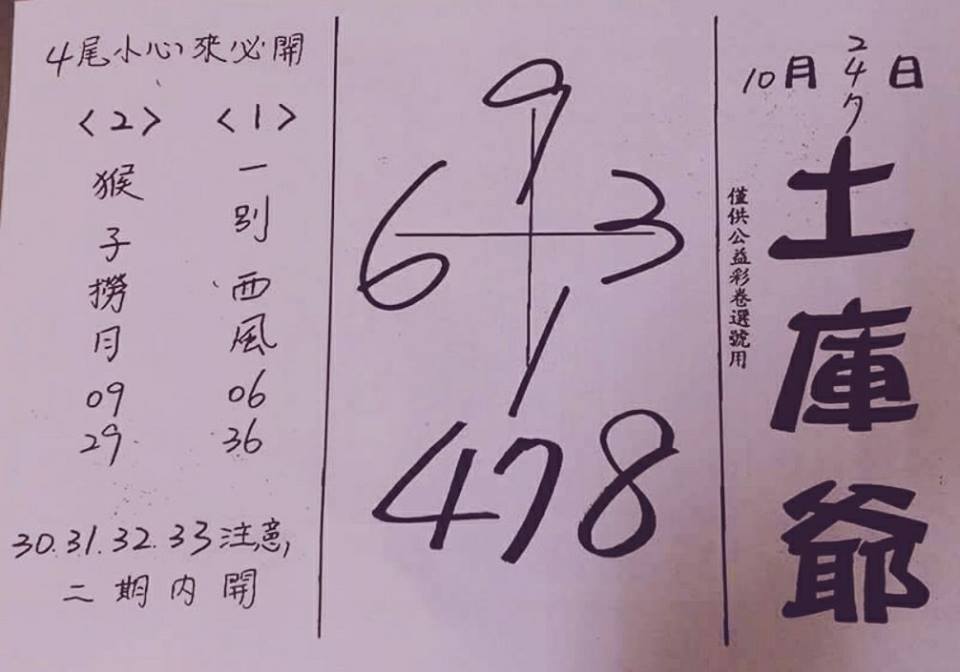 10月 2 4 7 日
土庫爺
僅供公益彩卷選號用
9
6 3
1
478
4尾小心來必開
<1>
一別西風
06
36
<2>
猴子撈月
09
29
30.31.32.33注意,
二期內開